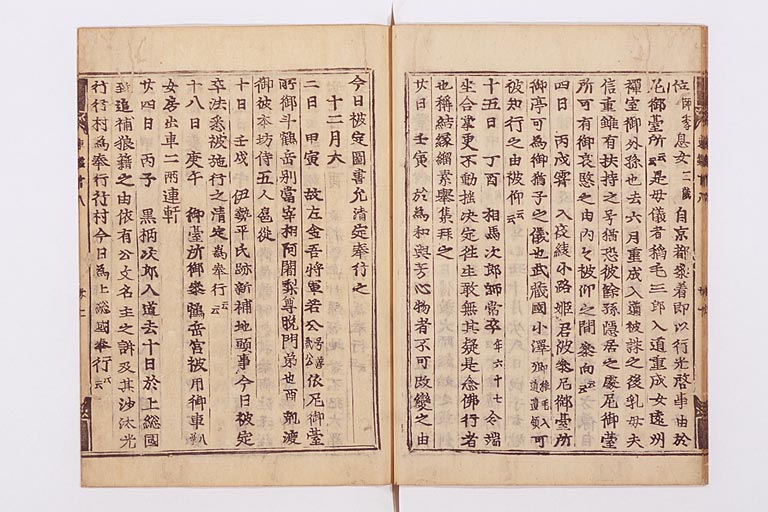 位師季息女二歳自京都參着即以行光啓事由於
尼御臺所云云是母儀者稲毛三郎入道重成女遠州
禪室御外孫也去六月重成入道被誅之後乳母夫
信重雖有扶持之号猶恐彼餘殃隠居之處尼御臺
所可有御哀愍之由内々被仰之間參向云云
四日 丙戌霽 入夜綾小路姫君被參尼御臺所
御亭可為御猶子之儀也武蔵國小澤郷稲毛入道遺領可
被知行之由被仰云云
十五日 丁酉 相馬次郎師常卒年六十七令端
坐合掌更不動揺決定往生敢無其疑是念佛行者
也稱結縁緇素擧集拜之
廿日 壬寅 於為和與去物者不可改變之由
今日被定圖書允清定奉行之
十二月大
二日 甲寅 故左金吾將軍若公号善哉公依尼御臺
所御計鶴岳別當宰相阿闍梨尊曉門弟也酉剋渡
御彼本坊侍五人扈従
十日 壬戌 伊勢平氏跡新補地頭事今日被定
率法悉被施行之清定為奉行云云
十八日 庚午 御臺所御參鶴岳宮被用御車八
女房出車二兩連軒
廿四日 丙子 黒柄次郎入道去十日於上総國
致追補狼籍之由依有公文名主之訴及其沙汰光
行行村為奉行行村今日為上総國奉行云云